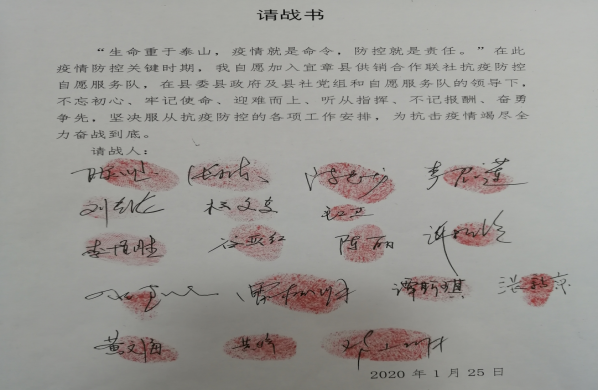 请战书
“生命重于泰山，疫情就是命令，防控就是责任。”在此
疫情防控关键时期，我自愿加入宜章县供销合作联社抗疫防控
自愿服务队，在县委县政府及县社党组和自愿服务队的领导下，
不忘初心、牢记使命、迎难而上、听从指挥、不记报酬、奋勇
争先，坚决服从抗疫防控的各项工作安排，为抗击疫情竭尽全
力奋战到底。
请战人：
陈丽
黄文海
2020年1月25日